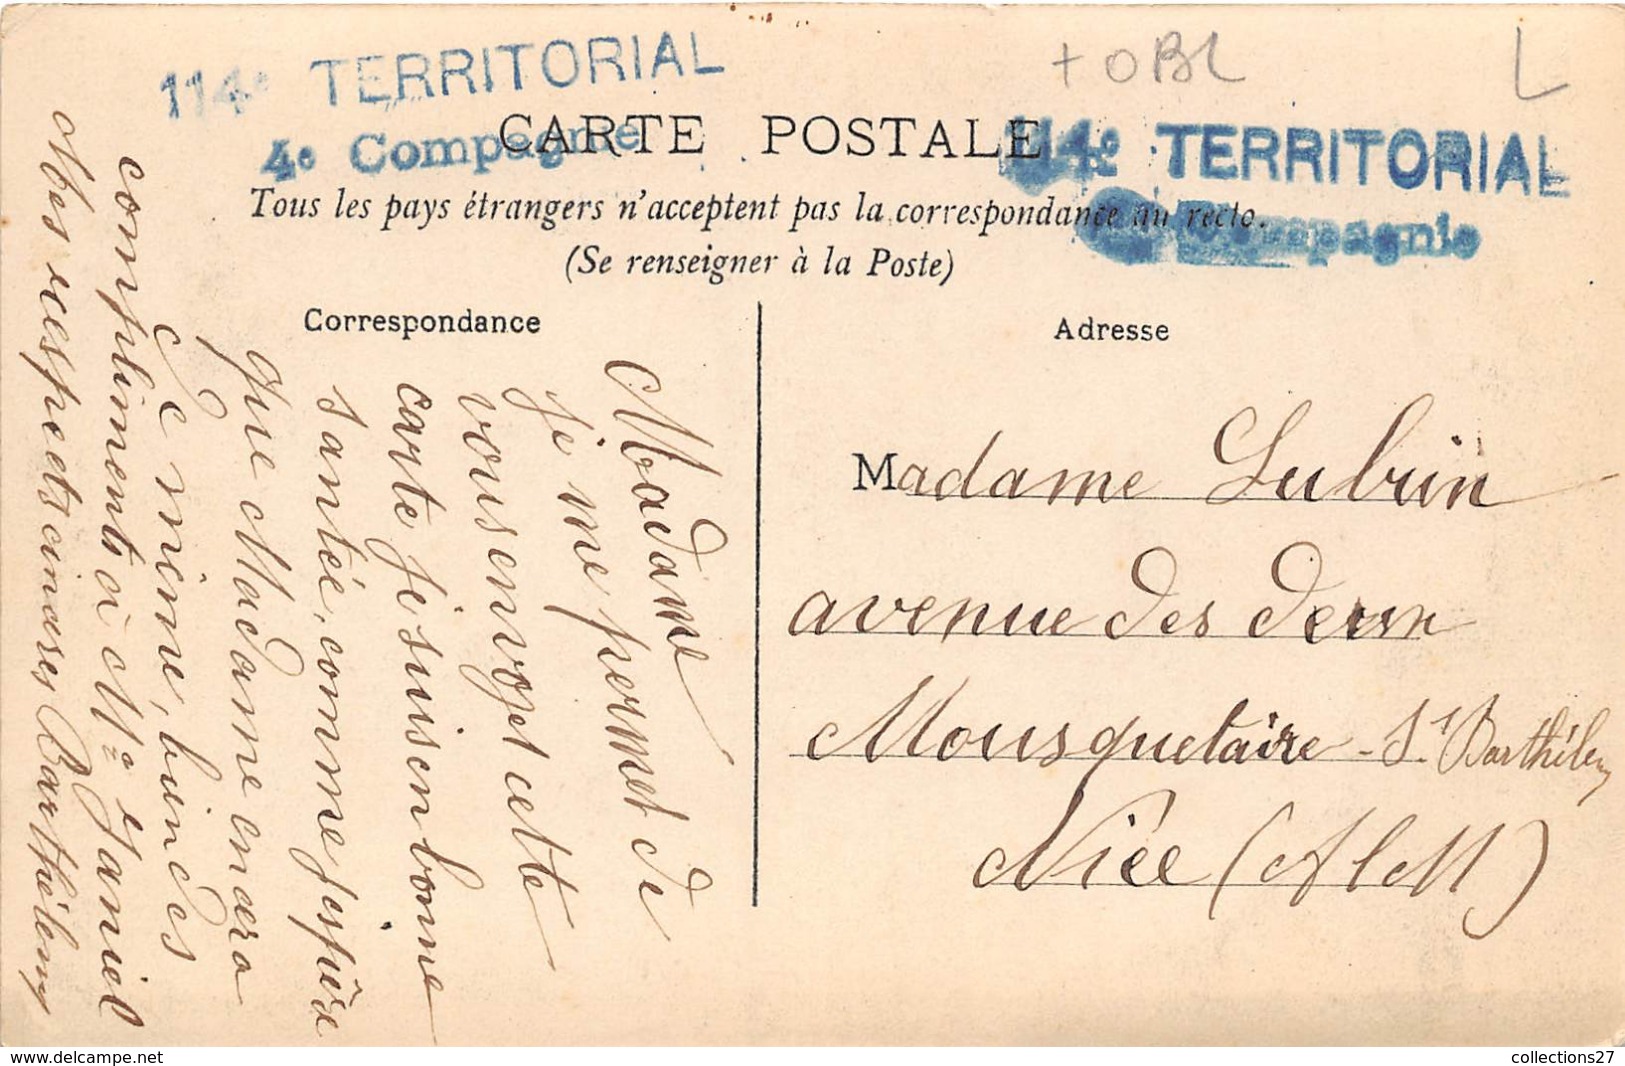 114e TERRITORIAL
4e Compagnie
+ OBL
L
114e TERRITORIAL
4e Compagnie
CARTE POSTALE
Tous les pays étrangers n'acceptent pas la correspondance au recto.
(Se renseigner à la Poste)
Correspondance
Adresse
Madame
Je me permet de
vous envoyet cette
carte je suis en bonne
santé, comme j'espère
que Madame en aera
de mème, bien des
compliments à Me Janiel
Mes respects cinares Barthélemy
Madame Lubrin
avenue des deux
Mousquetaire - St Barthélemy
Nice (Al M)
www.delcampe.net
collections27